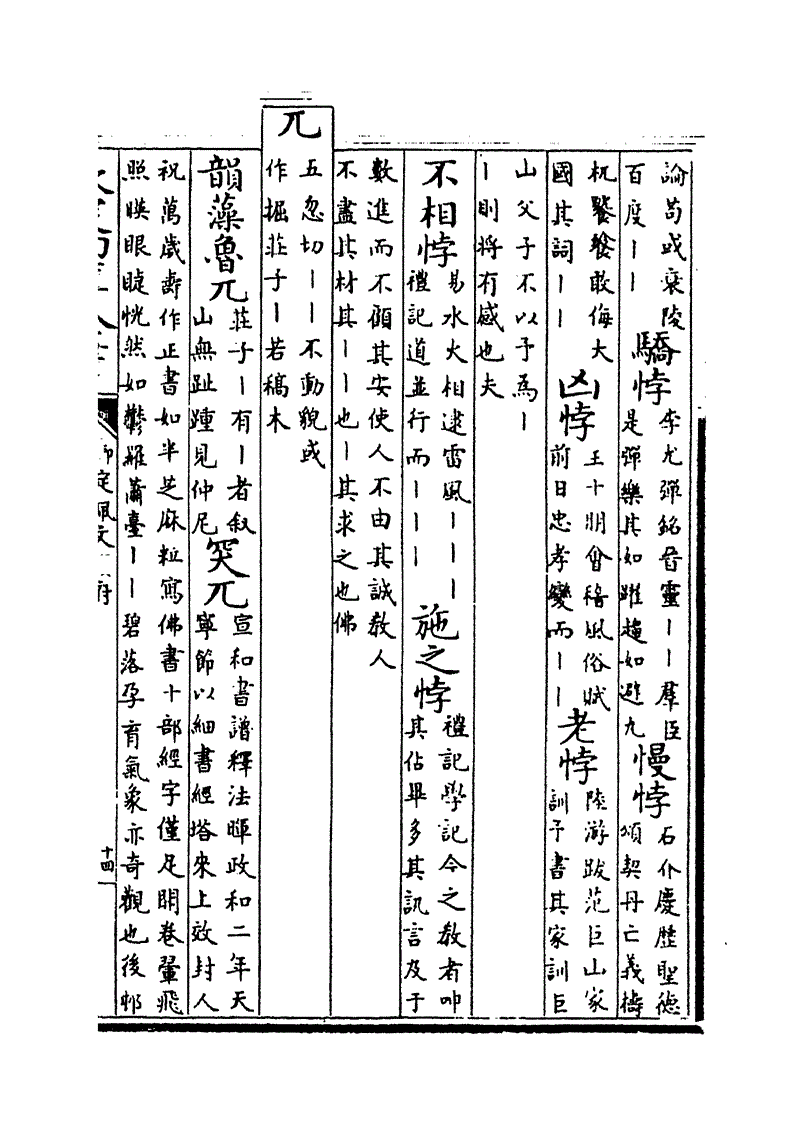 論苟或衰陵
百度｜｜
驕悖
李尤彈銘昏靈｜｜羣臣
是彈樂其如躍趨如避九
慢悖
石介慶歷聖德
頌契丹亡義檮
杌饕餮敢侮大
國其詞｜｜
凶悖
王十朋會稽風俗賦
前日忠孝變而｜｜
老悖
陸游跋范巨山家
訓予書其家訓巨
山父子不以予為｜
｜則將有感也夫
不相悖
易水火相逮雷風｜｜｜
禮記道並行而｜｜｜
施之悖
禮記學記今之教者呻
其佔畢多其訊言及于
數進而不顧其安使人不由其誠教人
不盡其材其｜｜也｜其求之也佛
兀
五忽切｜｜不動貌或
作掘莊子｜若稿木
韻藻魯兀
莊子｜有｜者叙
山無趾踵見仲尼
突兀
宣和書譜釋法暉政和二年天
寧節以細書經塔來上效封人
祝萬歲壽作正書如半芝麻粒寫佛書十部經字僅足開卷翬飛
照暎眼睫恍然如鬱羅蕭臺｜｜碧落孕育氣象亦奇觀也後邨
定佩文 府
十四